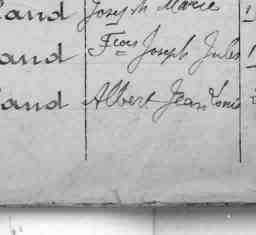 land Joseph Marie
land Fcois Joseph Jules
land Albert Jean Louis